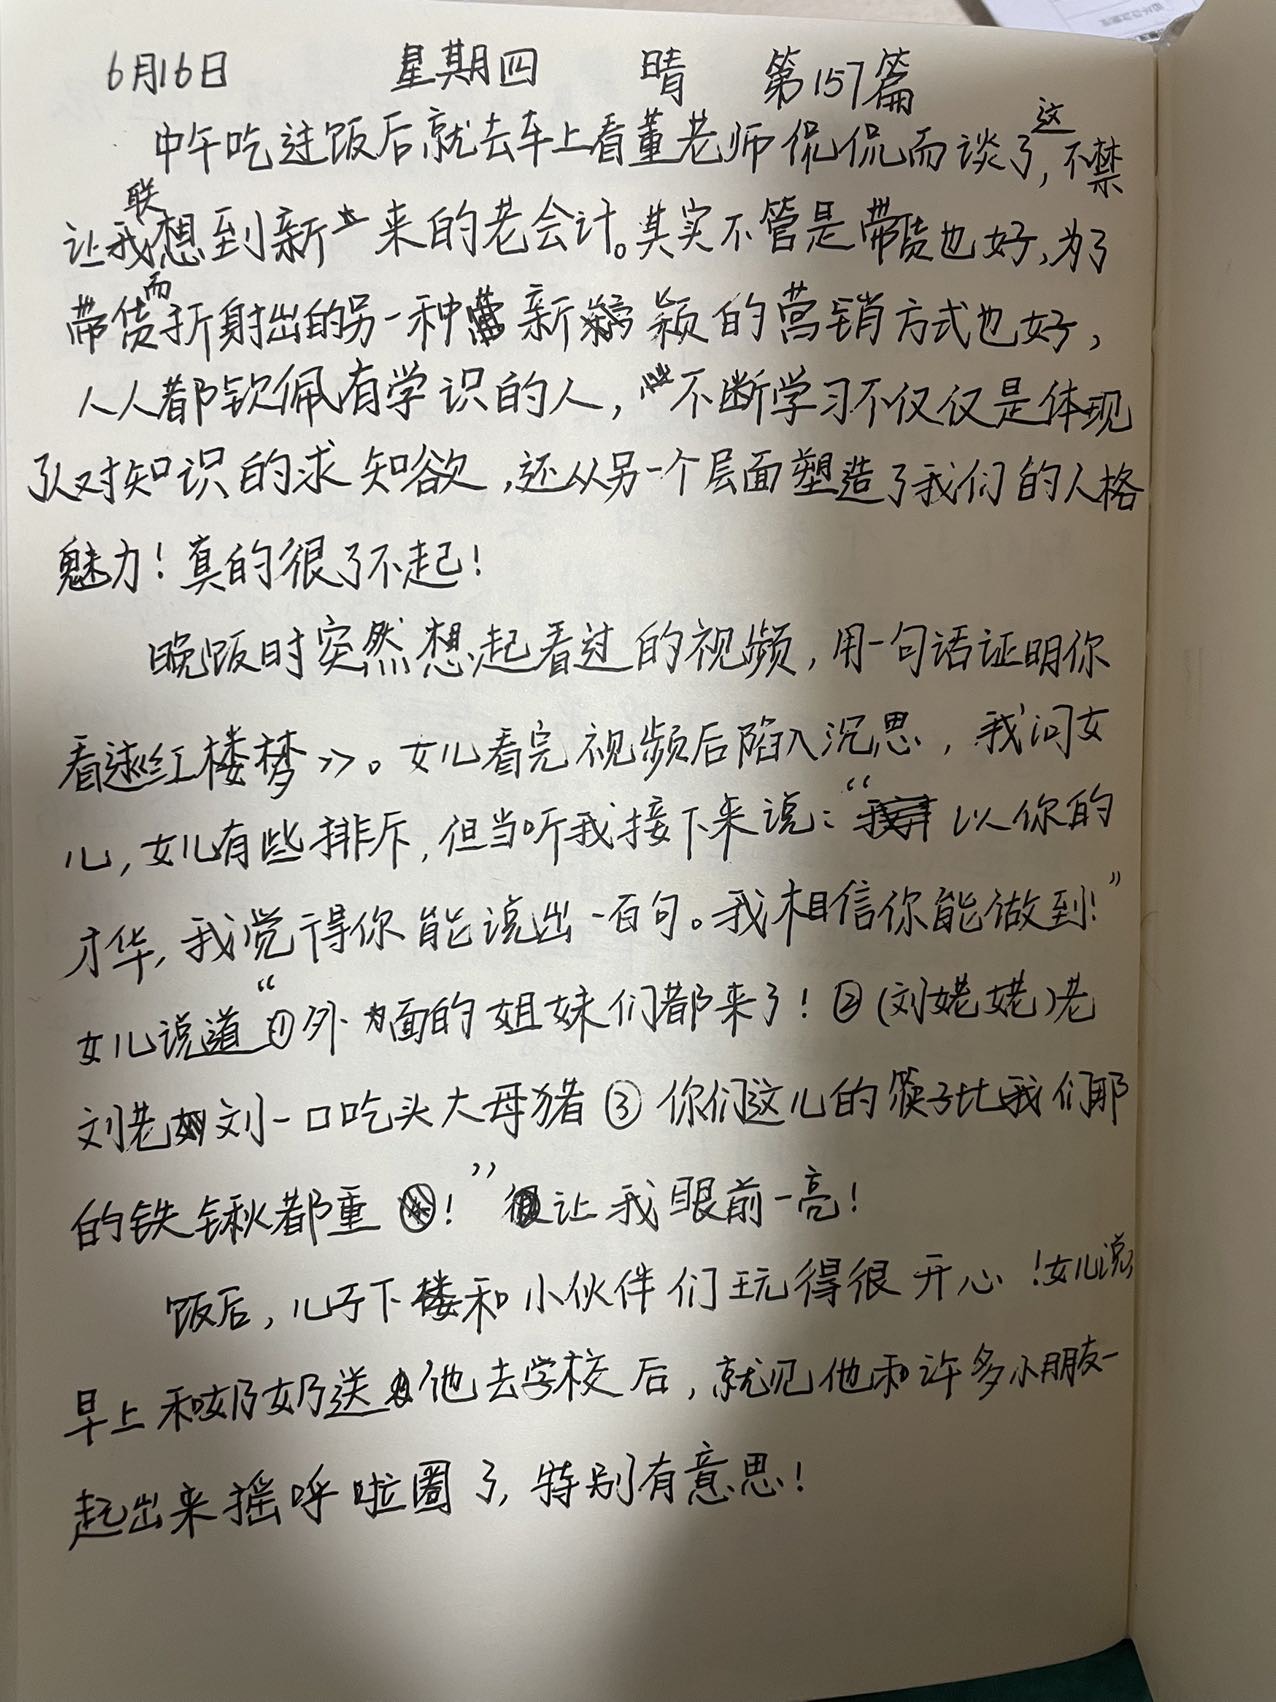 6月16日 星期四 晴 第157篇
中午吃过饭后就去车上看董老师侃侃而谈了,这不禁
让我联想到新来的老会计。其实不管是带货也好,为了
带货而折射出的另一种新颖的营销方式也好,
人人都钦佩有学识的人,不断学习不仅仅是体现
了对知识的求知欲,还从另一个层面塑造了我们的人格
魅力!真的很了不起!
晚饭时突然想起看过的视频,用一句话证明你
看过红楼梦》。女儿看完视频后陷入沉思,我问女
儿,女儿有些排斥,但当听我接下来说:“以你的
才华,我觉得你能说出一百句。我相信你能做到!”
女儿说道“①外面的姐妹们都来了!②(刘姥姥)老
刘老刘一口吃头大母猪③你们这儿的筷子比我们那
的铁锹都重!”让我眼前一亮!
饭后,儿子下楼和小伙伴们玩得很开心!女儿说,
早上和奶奶送他去学校后,就见他和许多小朋友一
起出来摇呼啦圈了,特别有意思!